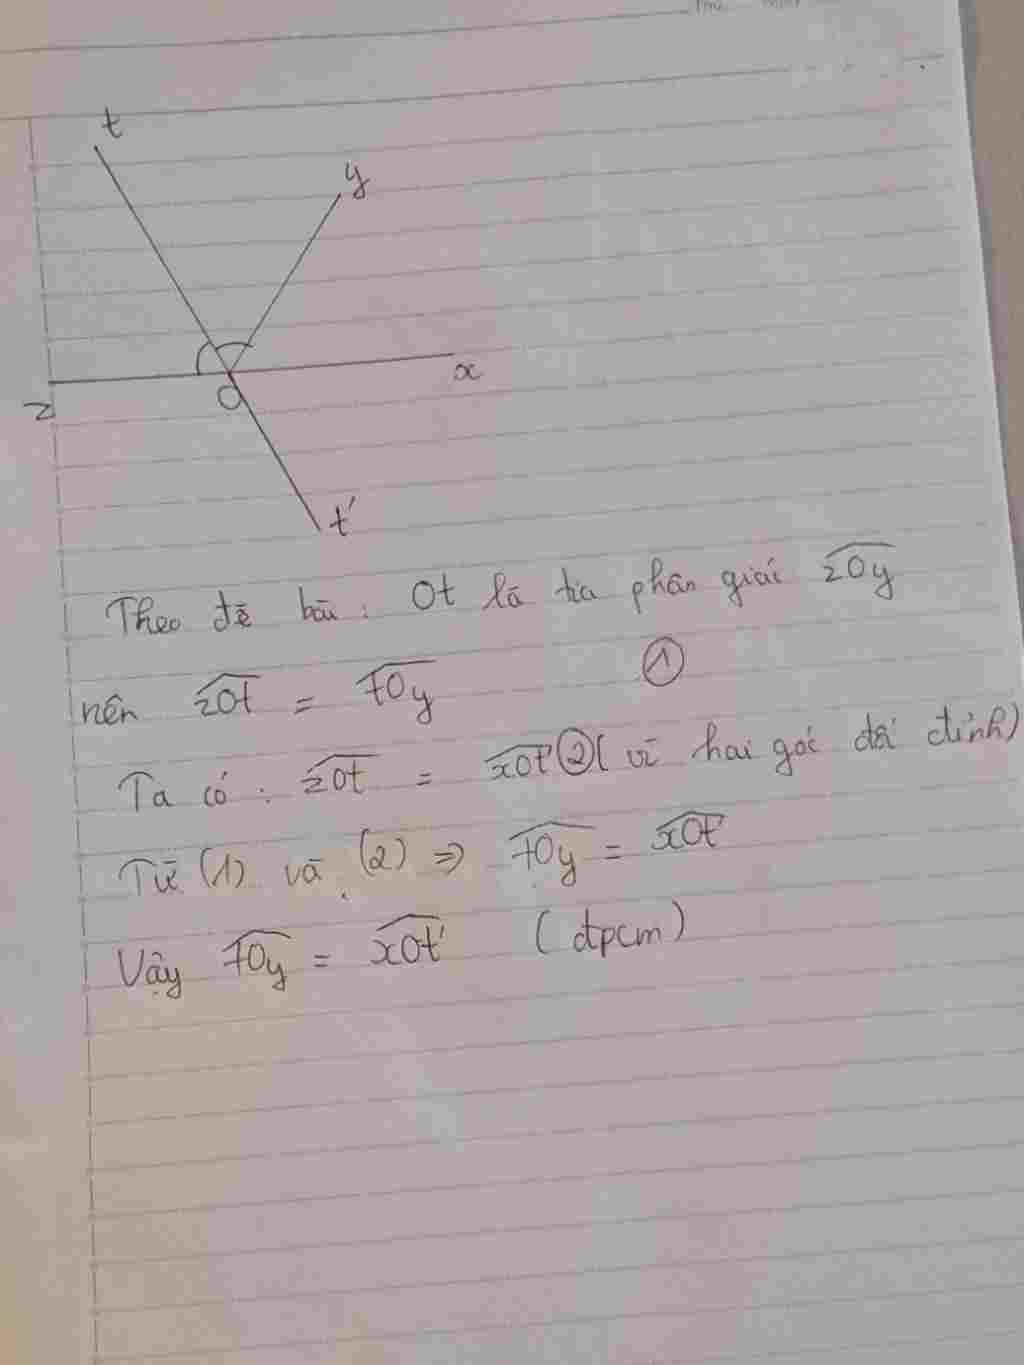 t
y
x
z
O
t'
Theo đề bài : Ot là tia phân giác zOy
nên zOt = tOy (1)
Ta có : zOt = xOt' (2) ( vì hai góc đối đỉnh)
Từ (1) và (2) => tOy = xOt'
Vậy tOy = xOt' (đpcm)